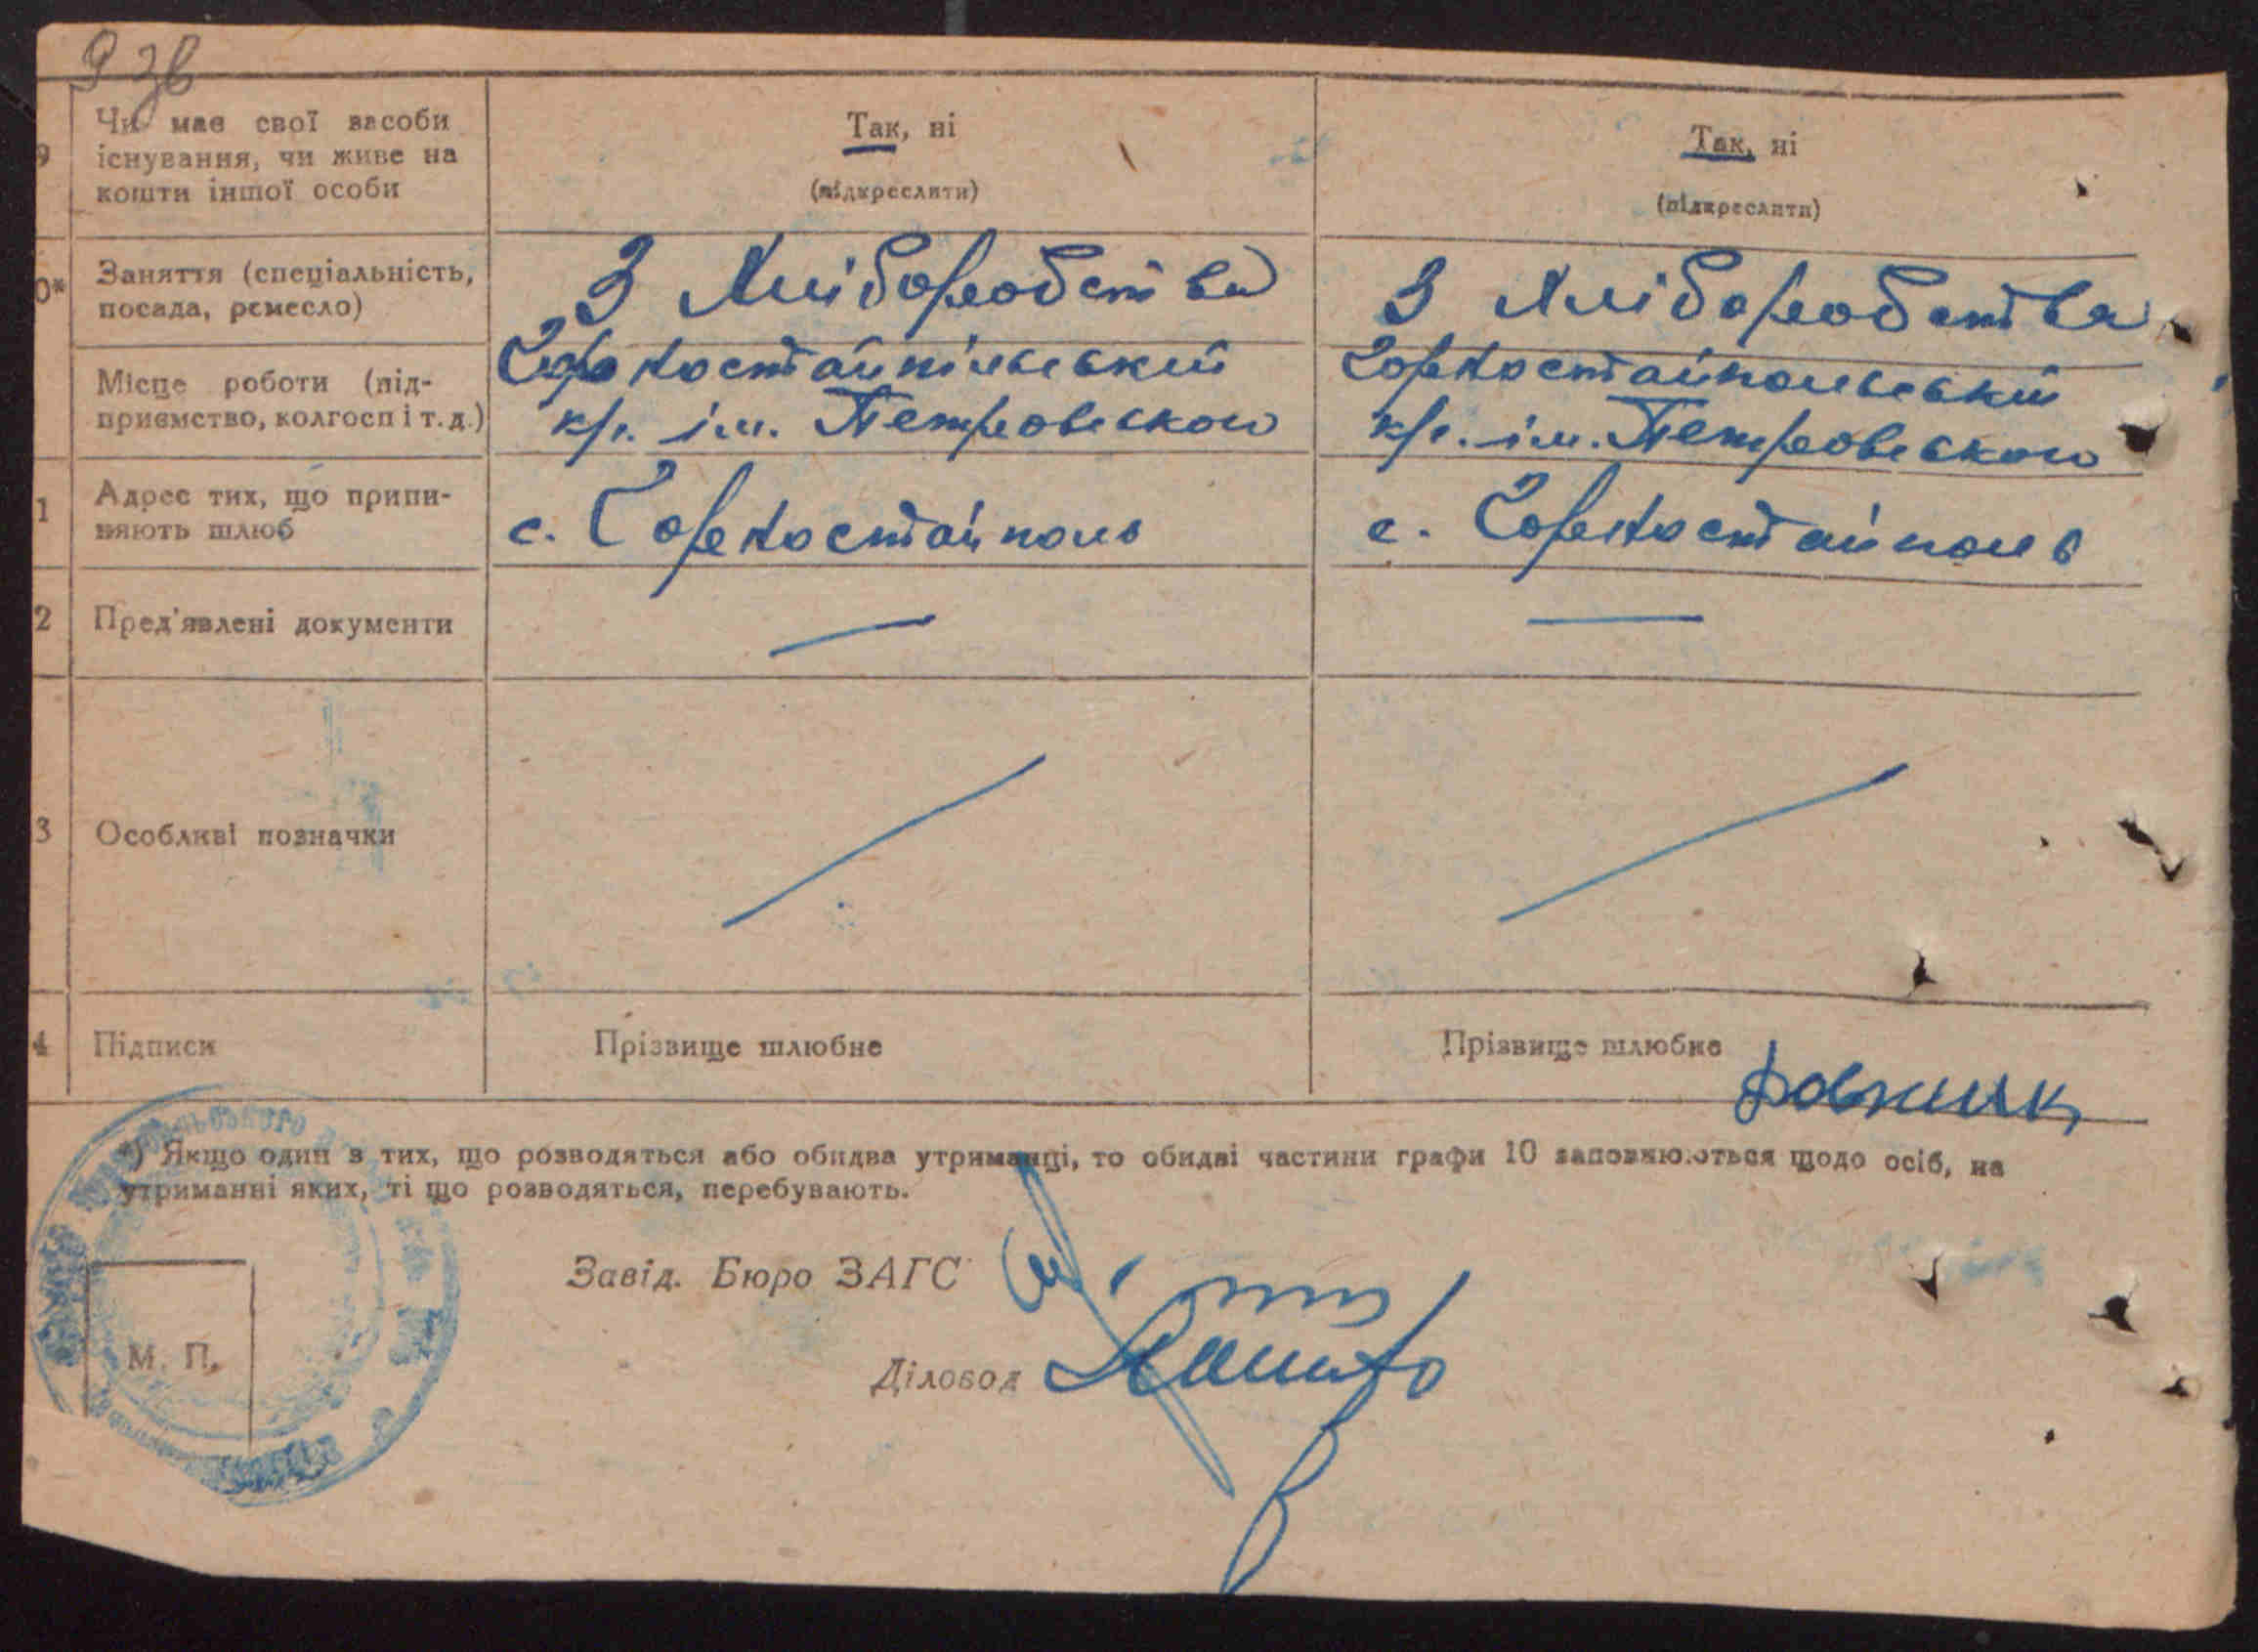 9 зв
9
Чи має свої засоби
існування, чи живе на
кошти іншої особи
Так, ні
(підкреслити)
Так, ні
(підкреслити)
0*
Заняття (спеціальність,
посада, ремесло)
З Хліборобства
З Хліборобства
Місце роботи (під-
приємство, колгосп і т.д.)
Горностайпільський
кр. ім. Петровського
Горностайпольський
кр. ім. Петровського
1
Адрес тих, що припи-
няють шлюб
с. Горностайполь
с. Горностайполь
2
Пред'явлені документи
3
Особливі позначки
4
Підписи
Прізвище шлюбне
Прізвище шлюбне
*) Якщо один з тих, що розводяться або обидва утриманці, то обидві частини графи 10 заповнюються щодо осіб, на
утриманні яких, ті що розводяться, перебувають.
Завід. Бюро ЗАГС
Діловод
М. П.